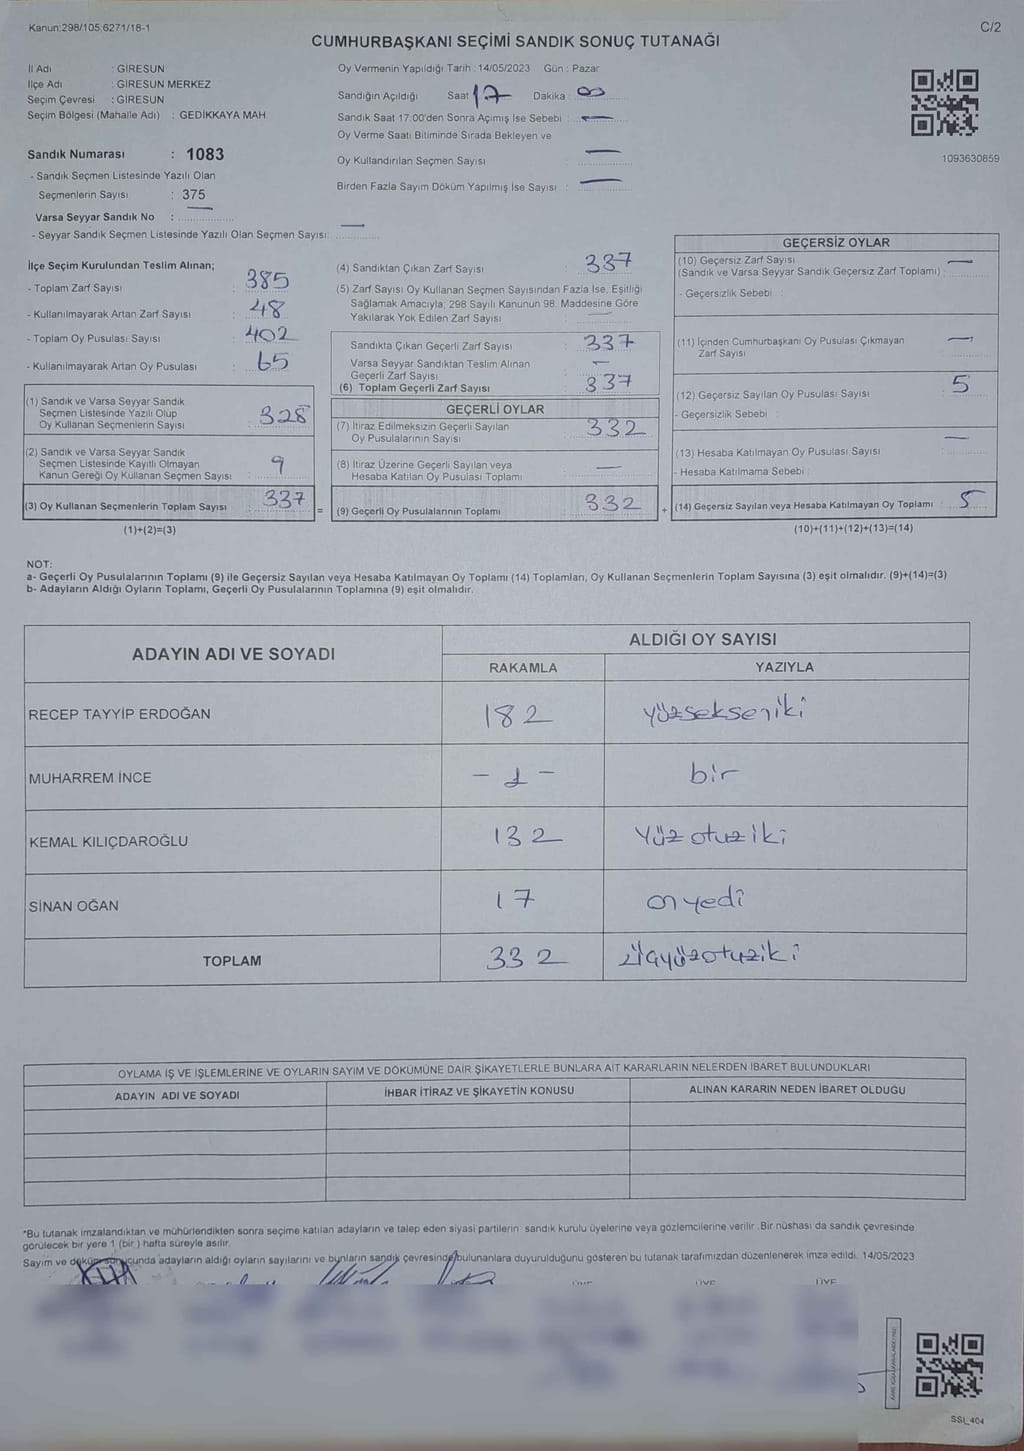 Kanun:298/105;6271/18-1
C/2
CUMHURBAŞKANI SEÇİMİ SANDIK SONUÇ TUTANAĞI
İl Adı : GİRESUN
İlçe Adı : GİRESUN MERKEZ
Seçim Çevresi : GİRESUN
Seçim Bölgesi (Mahalle Adı) : GEDİKKAYA MAH.
Sandık Numarası : 1083
- Sandık Seçmen Listesinde Yazılı Olan
Seçmenlerin Sayısı : 375
Varsa Seyyar Sandık No : —
- Seyyar Sandık Seçmen Listesinde Yazılı Olan Seçmen Sayısı: —
Oy Vermenin Yapıldığı Tarih : 14/05/2023 Gün : Pazar
Sandığın Açıldığı Saat 17 Dakika : 00
Sandık Saat 17.00'den Sonra Açılmış İse Sebebi : —
Oy Verme Saati Bitiminde Sırada Bekleyen ve
Oy Kullandırılan Seçmen Sayısı : —
Birden Fazla Sayım Döküm Yapılmış İse Sayısı : —
1093630859
İlçe Seçim Kurulundan Teslim Alınan;
- Toplam Zarf Sayısı : 385
- Kullanılmayarak Artan Zarf Sayısı : 48
- Toplam Oy Pusulası Sayısı : 402
- Kullanılmayarak Artan Oy Pusulası : 65
(1) Sandık ve Varsa Seyyar Sandık
Seçmen Listesinde Yazılı Olup
Oy Kullanan Seçmenlerin Sayısı : 328
(2) Sandık ve Varsa Seyyar Sandık
Seçmen Listesinde Kayıtlı Olmayan
Kanun Gereği Oy Kullanan Seçmen Sayısı : 9
(3) Oy Kullanan Seçmenlerin Toplam Sayısı : 337
(1)+(2)=(3)
=
(4) Sandıktan Çıkan Zarf Sayısı : 337
(5) Zarf Sayısı Oy Kullanan Seçmen Sayısından Fazla İse, Eşitliği
Sağlamak Amacıyla; 298 Sayılı Kanunun 98. Maddesine Göre
Yakılarak Yok Edilen Zarf Sayısı : —
Sandıkta Çıkan Geçerli Zarf Sayısı : 337
Varsa Seyyar Sandıktan Teslim Alınan
Geçerli Zarf Sayısı : —
(6) Toplam Geçerli Zarf Sayısı : 337
GEÇERLİ OYLAR
(7) İtiraz Edilmeksizin Geçerli Sayılan
Oy Pusulalarının Sayısı : 332
(8) İtiraz Üzerine Geçerli Sayılan veya
Hesaba Katılan Oy Pusulası Toplamı : —
(9) Geçerli Oy Pusulalarının Toplamı : 332
+
GEÇERSİZ OYLAR
(10) Geçersiz Zarf Sayısı —
(Sandık ve Varsa Seyyar Sandık Geçersiz Zarf Toplamı) :
- Geçersizlik Sebebi :
(11) İçinden Cumhurbaşkanı Oy Pusulası Çıkmayan
Zarf Sayısı : —
(12) Geçersiz Sayılan Oy Pusulası Sayısı : 5
- Geçersizlik Sebebi :
(13) Hesaba Katılmayan Oy Pusulası Sayısı : —
- Hesaba Katılmama Sebebi :
(14) Geçersiz Sayılan veya Hesaba Katılmayan Oy Toplamı : 5
(10)+(11)+(12)+(13)=(14)
NOT:
a- Geçerli Oy Pusulalarının Toplamı (9) ile Geçersiz Sayılan veya Hesaba Katılmayan Oy Toplamı (14) Toplamları, Oy Kullanan Seçmenlerin Toplam Sayısına (3) eşit olmalıdır. (9)+(14)=(3)
b- Adayların Aldığı Oyların Toplamı, Geçerli Oy Pusulalarının Toplamına (9) eşit olmalıdır.
ADAYIN ADI VE SOYADI
ALDIĞI OY SAYISI
RAKAMLA YAZIYLA
RECEP TAYYİP ERDOĞAN 182 yüzsekseniki
MUHARREM İNCE - 1 - bir
KEMAL KILIÇDAROĞLU 132 Yüz otuz iki
SİNAN OĞAN 17 onyedi
TOPLAM 332 üçyüzotuziki
OYLAMA İŞ VE İŞLEMLERİNE VE OYLARIN SAYIM VE DÖKÜMÜNE DAİR ŞİKAYETLERLE BUNLARA AİT KARARLARIN NELERDEN İBARET BULUNDUKLARI
ADAYIN ADI VE SOYADI İHBAR İTİRAZ VE ŞİKAYETİN KONUSU ALINAN KARARIN NEDEN İBARET OLDUĞU
*Bu tutanak imzalandıktan ve mühürlendikten sonra seçime katılan adayların ve talep eden siyasi partilerin sandık kurulu üyelerine veya gözlemcilerine verilir. Bir nüshası da sandık çevresinde
görülecek bir yere 1 (bir ) hafta süreyle asılır.
Sayım ve döküm sonucunda adayların aldığı oyların sayılarını ve bunların sandık çevresinde bulunanlara duyurulduğunu gösteren bu tutanak tarafımızdan düzenlenerek imza edildi. 14/05/2023
ÜYE ÜYE ÜYE
SSI_404